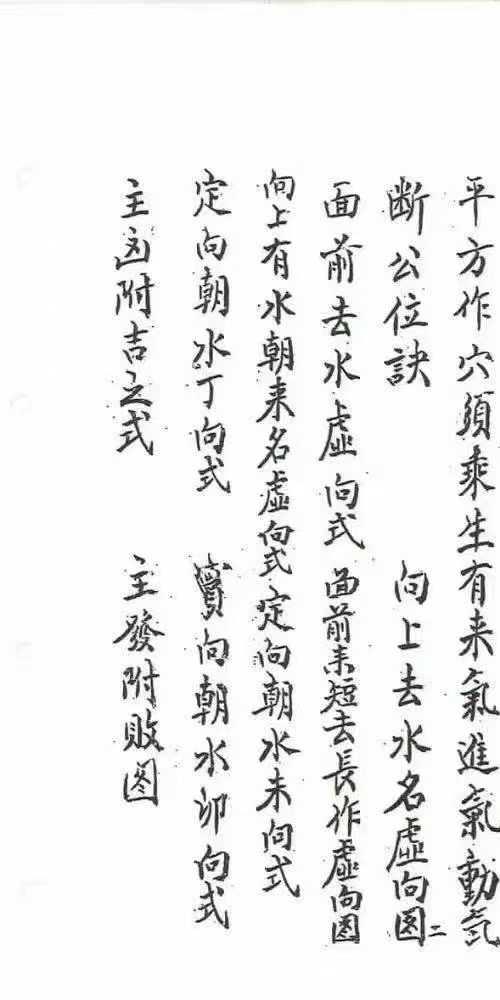 平方作穴須乘生有来氣進氣動氣
断公位訣 向上去水名虛向图二
面前去水虛向式 面前来短去長作虛向图
向上有水朝来名虛向式 定向朝水未向式
定向朝水丁向式 實向朝水卯向式
主凶附吉之式 主發附敗图